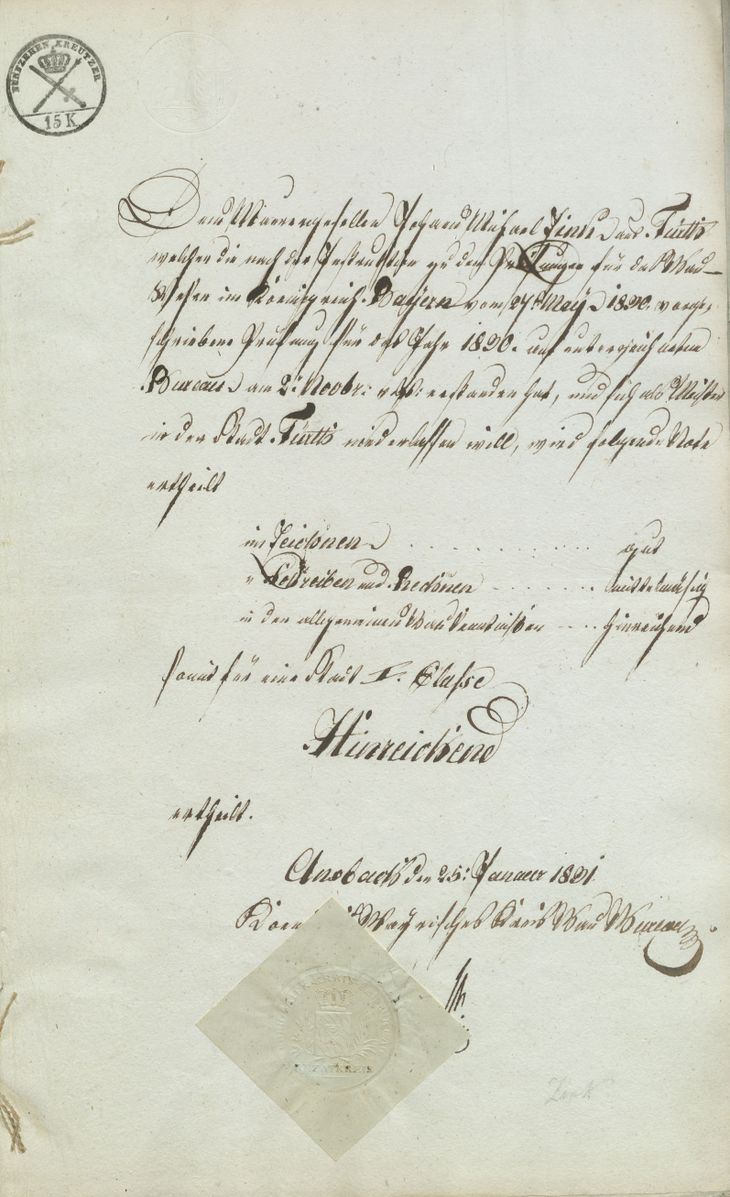 FÜNFZEHEN KREUTZER
15 K
Dem Maurergesellen Johann Michael Zink aus Fürth
welcher die nach der Instruction zu den Prüfungen für das Bau-
Wesen im Koenigreich Bayern vom 27. May 1830 vorge-
schriebene Prüfung für das Jahr 1830. auf unterzeichnetem
Bureau am 2. Novbr: v. Js: erstanden hat, und sich als Meister
in der Stadt Fürth niederlassen will, wird folgende Note
ertheilt
im Zeichnen . . . . . . . . . . . . gut
" Schreiben und Rechnen . . . . . . . mittelmäsig
in den allgemeinen Baukenntnissen . . . . hinreichend
somit für eine Stadt I. Classe
Hinreichend
ertheilt.
Ansbach den 25: Januar 1831
Bayerisches Kreis Bau Bureau
REZATKREIS
Zink